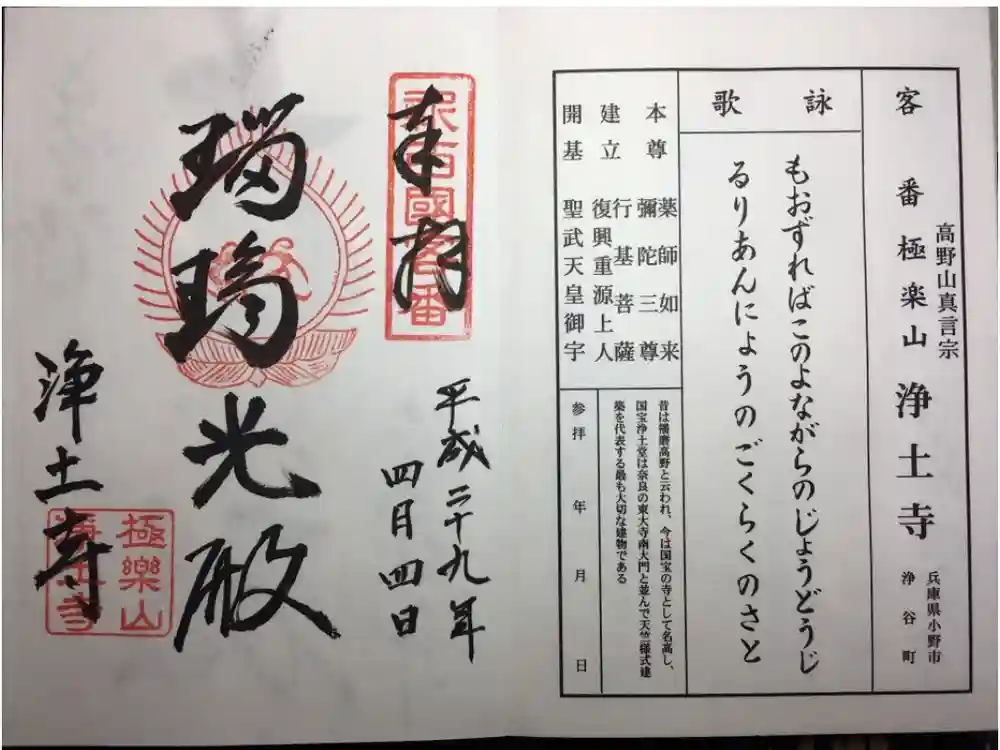 客番 極楽山 浄土寺
高野山真言宗
兵庫県小野市
浄谷町
詠歌
もおずればこのよながらのじょうどうじ
るりあんにょうのごくらくのさと
本尊 薬師如来
彌陀三尊
建立 行基菩薩
復興重源上人
開基 聖武天皇御宇
昔は播磨高野と云われ、今は国宝の寺として名高し、
国宝浄土堂は奈良の東大寺南大門と並んで天竺様式建
築を代表する最も大切な建物である
参拝 年 月 日
奉拝
新西國客番
平成二十九年
四月四日
瑠璃光殿
浄土寺
極樂山
浄土寺